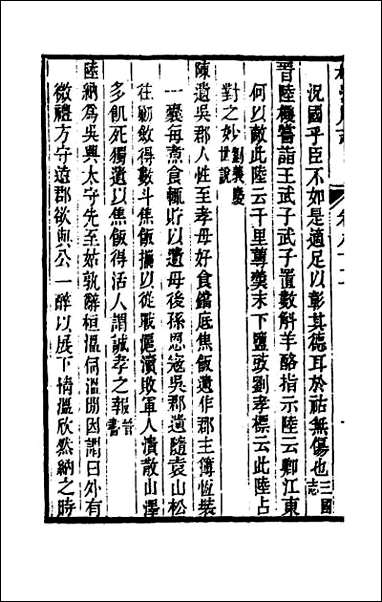 況國乎臣不如是適足以彰其德耳於祐無傷也三國志
晉陸機嘗詣王武子武子置數斛羊酪指示陸云卿江東
何以敵此陸云千里蓴羹末下鹽豉劉孝標云此陸占
對之妙劉義慶世說
陳遺吳郡人性至孝母好食鐺底焦飯遺作郡主簿恆裝
一囊每煮食輒貯以遺母後孫恩寇吳郡遺隨袁山松
往勦斂得數斗焦飯攜以從戰滬瀆敗軍人潰散山澤
多飢死獨遺以焦飯得活人謂誠孝之報晉書
陸納為吳興太守先至姑孰辭桓溫伺溫閒因謂曰外有
微禮方守遠郡欲與公一醉以展下情溫欣然納之時